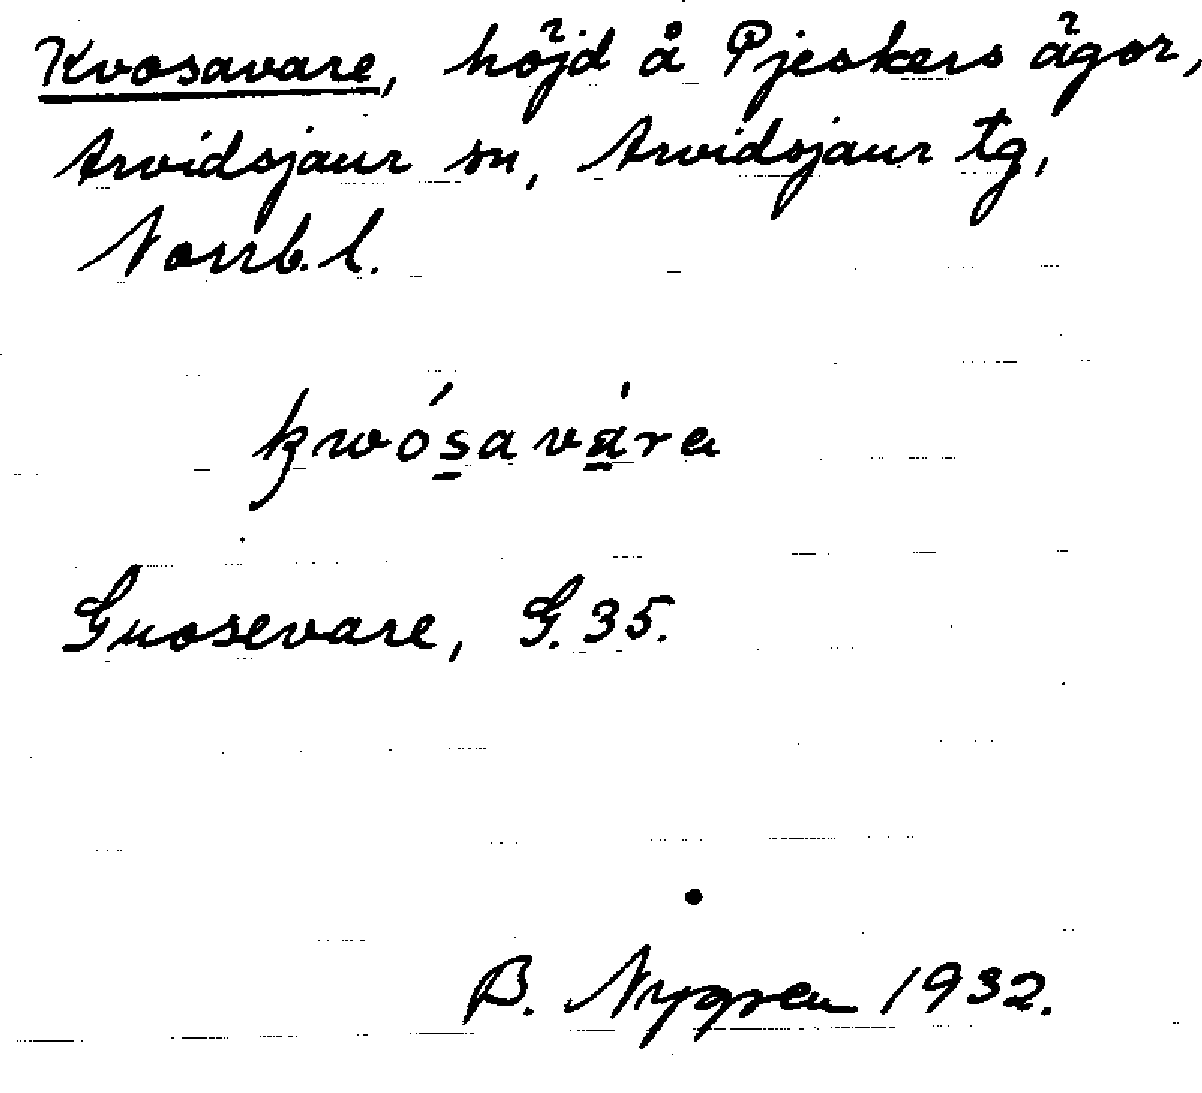 Kvosavare, höjd å Pjeskers ägor,
Arvidsjaur sn, Arvidsjaur tg,
Norrb. l.
kwósavárɐ
Guosevare, G. 35.
B. Nygren 1932.